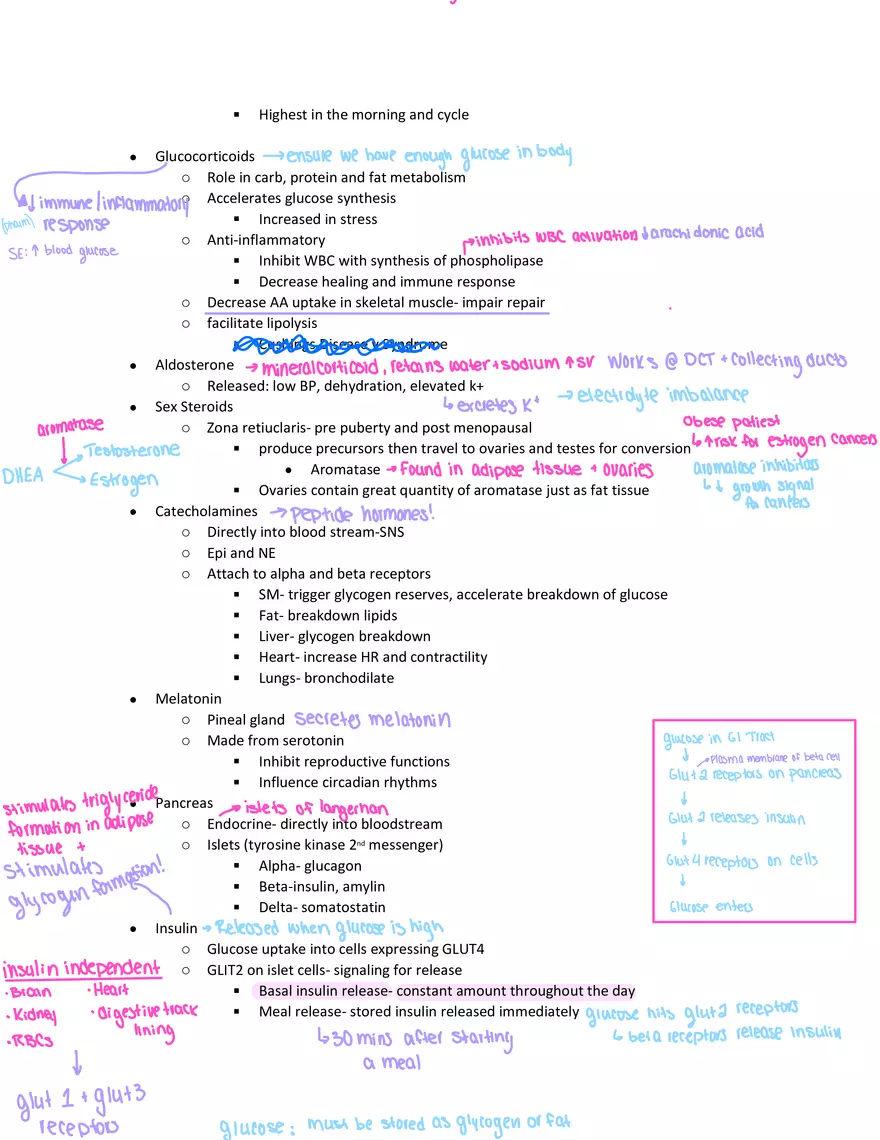 ▪ Highest in the morning and cycle
• Glucocorticoids → ensure we have enough glucose in body
○ Role in carb, protein and fat metabolism
↓ immune/inflammatory
response
SE: ↑ blood glucose
○ Accelerates glucose synthesis
▪ Increased in stress
○ Anti-inflammatory
→ inhibits WBC activation ↓ arachidonic acid
▪ Inhibit WBC with synthesis of phospholipase
▪ Decrease healing and immune response
○ Decrease AA uptake in skeletal muscle- impair repair
○ facilitate lipolysis
▪ Cushings Disease v Syndrome
• Aldosterone → mineralcorticoid, retains water + sodium ↑ SV works @ DCT + collecting ducts
○ Released: low BP, dehydration, elevated k+
↳ excretes K+ → electrolyte imbalance
• Sex Steroids
○ Zona retiuclaris- pre puberty and post menopausal
▪ produce precursors then travel to ovaries and testes for conversion
• Aromatase → found in adipose tissue + ovaries
▪ Ovaries contain great quantity of aromatase just as fat tissue
aromatase
DHEA
→ Testosterone
→ Estrogen
Obese patient
↳ ↑ risk for estrogen cancers
aromatase inhibitors
↳ ↓ growth signal
for cancers
• Catecholamines → peptide hormones!
○ Directly into blood stream-SNS
○ Epi and NE
○ Attach to alpha and beta receptors
▪ SM- trigger glycogen reserves, accelerate breakdown of glucose
▪ Fat- breakdown lipids
▪ Liver- glycogen breakdown
▪ Heart- increase HR and contractility
▪ Lungs- bronchodilate
• Melatonin
○ Pineal gland secretes melatonin
○ Made from serotonin
▪ Inhibit reproductive functions
▪ Influence circadian rhythms
glucose in GI Tract
↓ → plasma membrane of beta cell
Glut 2 receptors on pancreas
↓
Glut 2 releases insulin
↓
Glut 4 receptors on cells
↓
Glucose enters
• Pancreas → islets of langerhan
○ Endocrine- directly into bloodstream
○ Islets (tyrosine kinase 2nd messenger)
▪ Alpha- glucagon
▪ Beta-insulin, amylin
▪ Delta- somatostatin
stimulates triglyceride
formation in adipose
tissue +
stimulates
glycogen formation!
• Insulin → Released when glucose is high
○ Glucose uptake into cells expressing GLUT4
○ GLIT2 on islet cells- signaling for release
▪ Basal insulin release- constant amount throughout the day
▪ Meal release- stored insulin released immediately glucose hits glut2 receptors
↳ beta receptors release insulin
↳ 30 mins after starting
a meal
insulin independent
• Brain • Heart
• Kidney • digestive track
lining
• RBCs
↓
glut 1 + glut3
receptors
glucose: must be stored as glycogen or fat